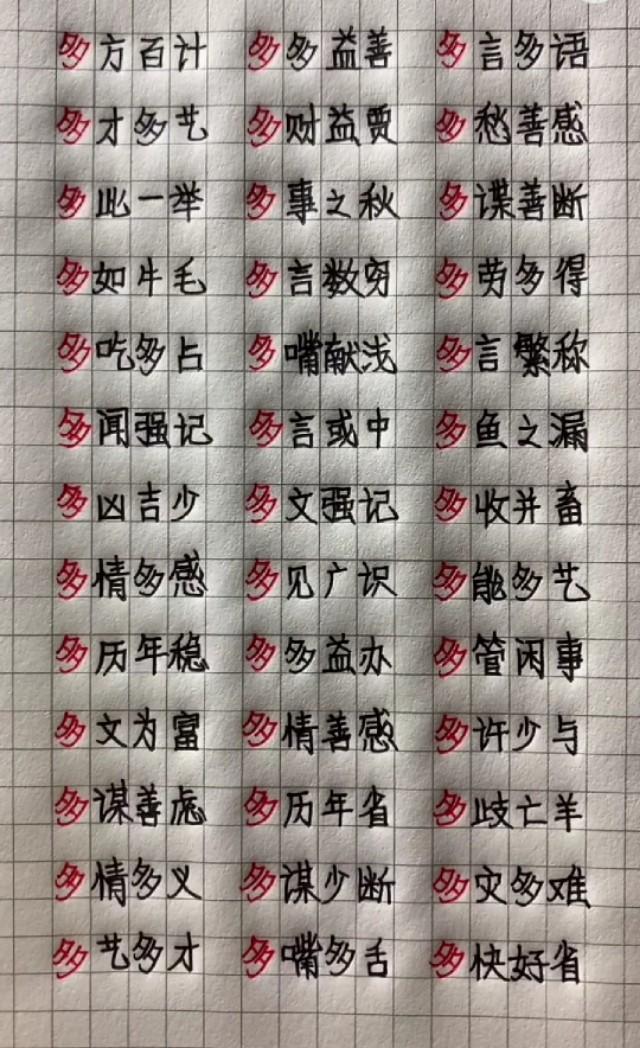 多方百计 多多益善 多言多语
多才多艺 多财益贾 多愁善感
多此一举 多事之秋 多谋善断
多如牛毛 多言数穷 多劳多得
多吃多占 多嘴献浅 多言繁称
多闻强记 多言或中 多鱼之漏
多凶吉少 多文强记 多收并畜
多情多感 多见广识 多能多艺
多历年稳 多多益办 多管闲事
多文为富 多情善感 多许少与
多谋善虑 多历年省 多歧亡羊
多情多义 多谋少断 多灾多难
多艺多才 多嘴多舌 多快好省